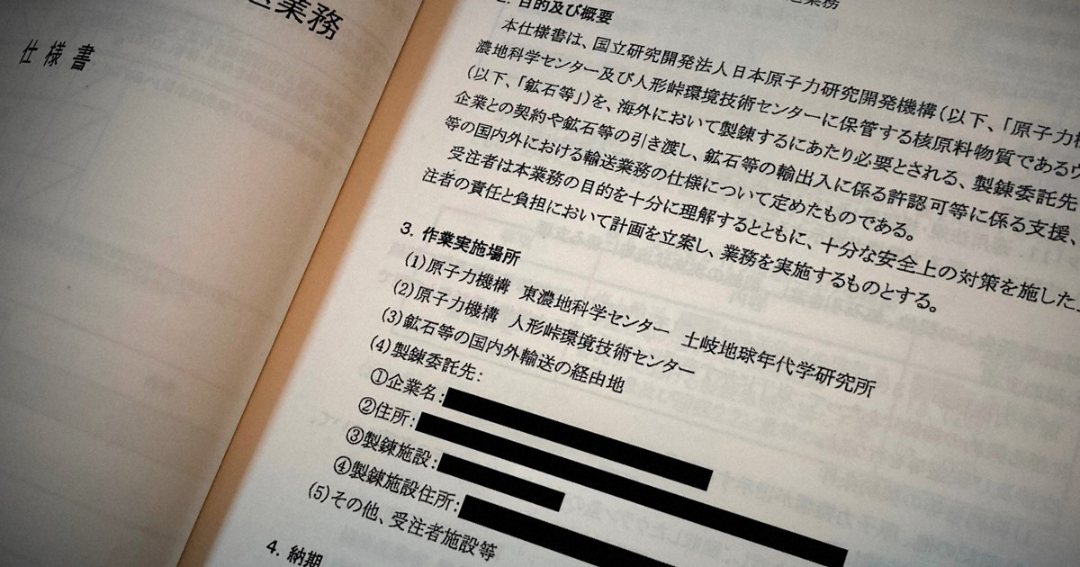 業務
仕様書
業務
2. 目的及び概要
本仕様書は、国立研究開発法人日本原子力研究開発機構(以下、「原子力機
濃地科学センター及び人形峠環境技術センターに保管する核原料物質であるウ
(以下、「鉱石等」)を、海外において製錬するにあたり必要とされる、製錬委託先
企業との契約や鉱石等の引き渡し、鉱石等の輸出入に係る許認可等に係る支援、
等の国内外における輸送業務の仕様について定めたものである。
受注者は本業務の目的を十分に理解するとともに、十分な安全上の対策を施した上
注者の責任と負担において計画を立案し、業務を実施するものとする。
3. 作業実施場所
(1)原子力機構 東濃地科学センター 土岐地球年代学研究所
(2)原子力機構 人形峠環境技術センター
(3)鉱石等の国内外輸送の経由地
(4)製錬委託先:
①企業名:
②住所:
③製錬施設:
④製錬施設住所:
(5)その他、受注者施設等
4. 納期